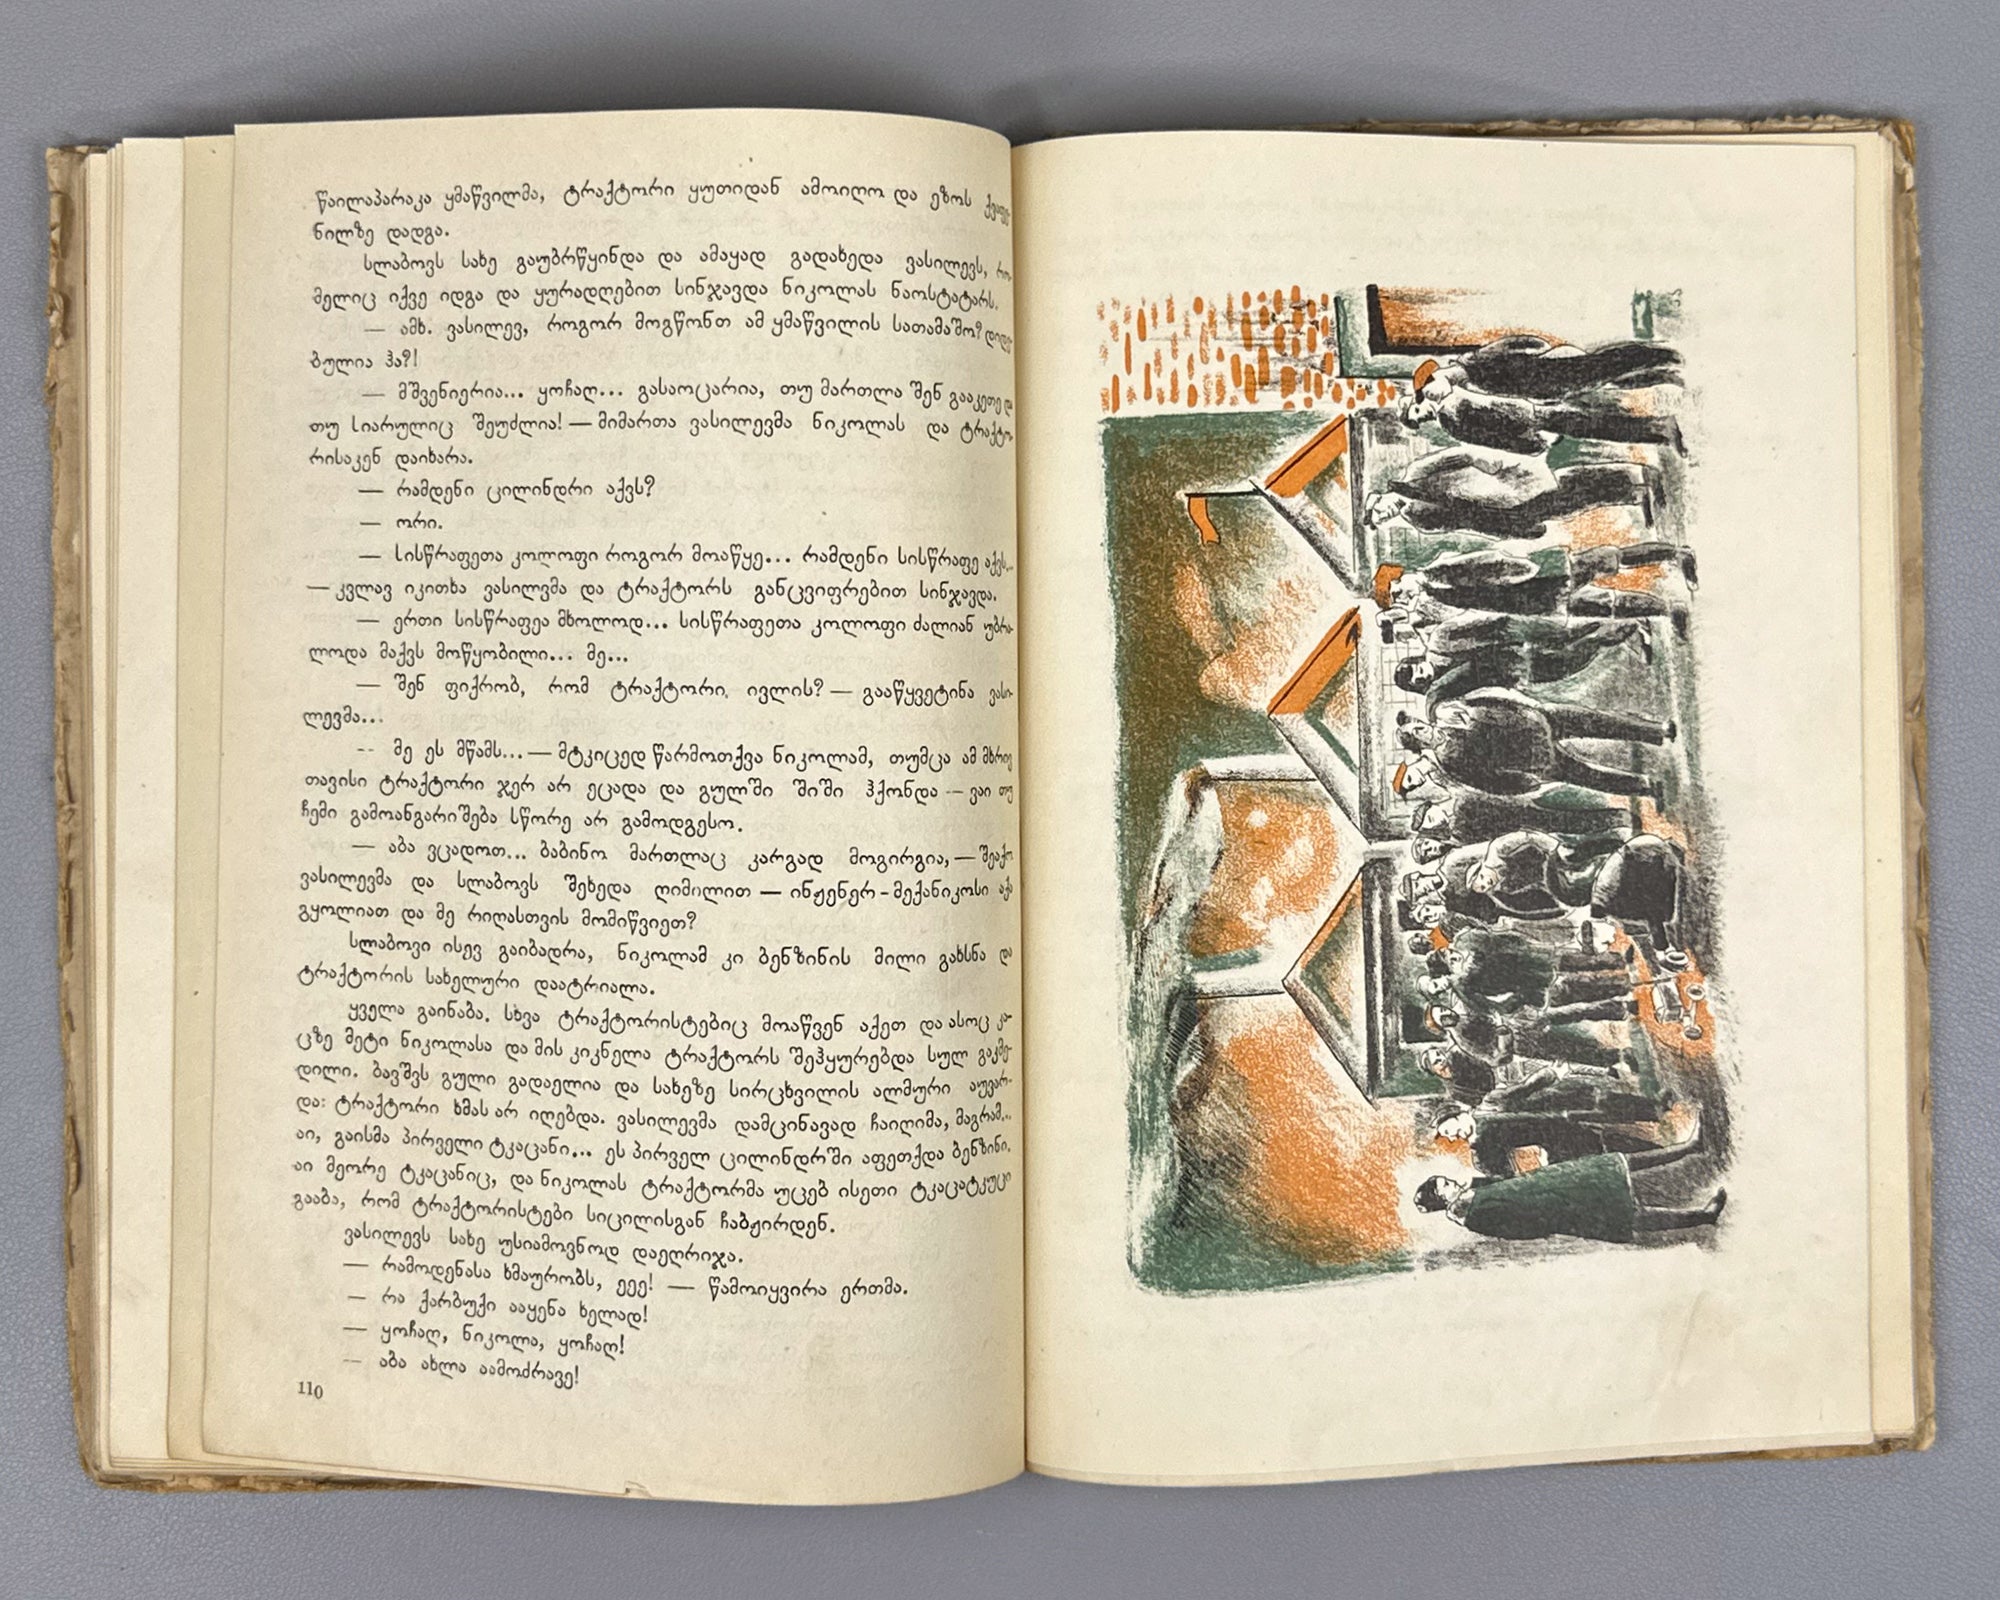 წაილაპარაკა ყმაწვილმა, ტრაქტორი ყუთიდან ამოიღო და ეზოს
ნილზე დადგა.
სლაბოვს სახე გაუბრწყინდა და ამაყად გადახედა ვასილევს, რო-
მელიც იქვე იდგა და ყურადღებით სინჯავდა ნიკოლას ნაოსტატარს.
— ამხ. ვასილევ, როგორ მოგწონთ ამ ყმაწვილის სათამაშო? დიდე-
ბულია ჰა?!
— მშვენიერია... ყოჩაღ... გასაოცარია, თუ მართლა შენ გააკეთე და
თუ სიარულიც შეუძლია! — მიმართა ვასილევმა ნიკოლას და ტრაქტო-
რისაკენ დაიხარა.
— რამდენი ცილინდრი აქვს?
— ორი.
— სისწრაფეთა კოლოფი როგორ მოაწყე... რამდენი სისწრაფე აქვს...
— კვლავ იკითხა ვასილევმა და ტრაქტორს განცვიფრებით სინჯავდა.
— ერთი სისწრაფეა მხოლოდ... სისწრაფეთა კოლოფი ძალიან უბრა-
ლოდა მაქვს მოწყობილი... მე...
— შენ ფიქრობ, რომ ტრაქტორი ივლის? — გააწყვეტინა ვასი-
ლევმა...
— მე ეს მწამს... — მტკიცედ წარმოთქვა ნიკოლამ, თუმცა ამ მხრივ
თავისი ტრაქტორი ჯერ არ ეცადა და გულში შიში ჰქონდა — ვაი თუ
ჩემი გამოანგარიშება სწორე არ გამოდგესო.
— აბა ვცადოთ... ბაბინო მართლაც კარგად მოგირგია, — შეაქო
ვასილევმა და სლაბოვს შეხედა ღიმილით — ინჟენერ-მექანიკოსი აქა
გყოლიათ და მე რიღასთვის მომიწვიეთ?
სლაბოვი ისევ გაიბადრა, ნიკოლამ კი ბენზინის მილი გახსნა და
ტრაქტორის სახელური დაატრიალა.
ყველა გაინაბა. სხვა ტრაქტორისტებიც მოაწვენ აქეთ და ასოც კა-
ცზე მეტი ნიკოლასა და მის კიკნელა ტრაქტორს შეჰყურებდა სულ გაკმე-
დილი. ბავშვს გული გადაელია და სახეზე სირცხვილის ალმური აუვარ-
და: ტრაქტორი ხმას არ იღებდა. ვასილევმა დამცინავად ჩაიღიმა, მაგრამ...
აი, გაისმა პირველი ტკაცანი... ეს პირველ ცილინდრში აფეთქდა ბენზინი.
აი მეორე ტკაცანიც, და ნიკოლას ტრაქტორმა უცებ ისეთი ტკაცატკუცი
გააბა, რომ ტრაქტორისტები სიცილისგან ჩაბჟირდენ.
ვასილევს სახე უსიამოვნოდ დაეღრიჯა.
— რამოდენასა ხმაურობს, ეეე! — წამოიყვირა ერთმა.
— რა ქარბუქი ააყენა ხელად!
— ყოჩაღ, ნიკოლა, ყოჩაღ!
— აბა ახლა აამოძრავე!
110